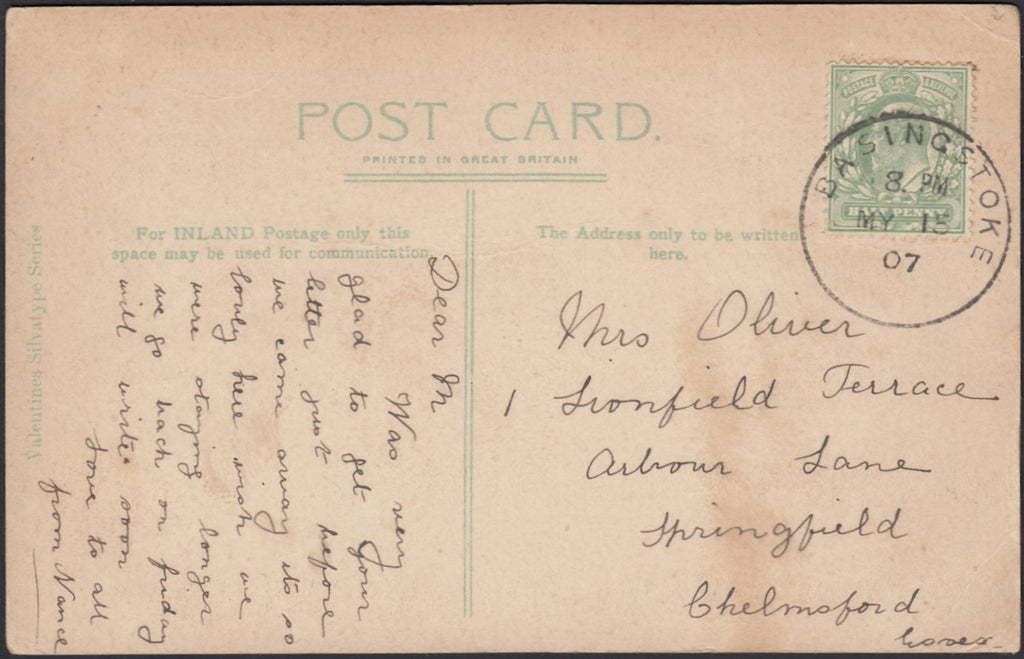 POST CARD.
PRINTED IN GREAT BRITAIN
For INLAND Postage only this
space may be used for communication.
The Address only to be written
here.
Valentines Silvatype Series
POSTAGE
HALFPENNY
BASINGSTOKE
8. PM
MY 15
07
Dear M
Was very
glad to get your
letter just before
we came away its so
lovly here wish we
were staying longer
we go back on friday
will write soon
love to all
from Nance
Mrs Oliver
1 Lionfield Terrace
Arbour Lane
Springfield
Chelmsford
Essex